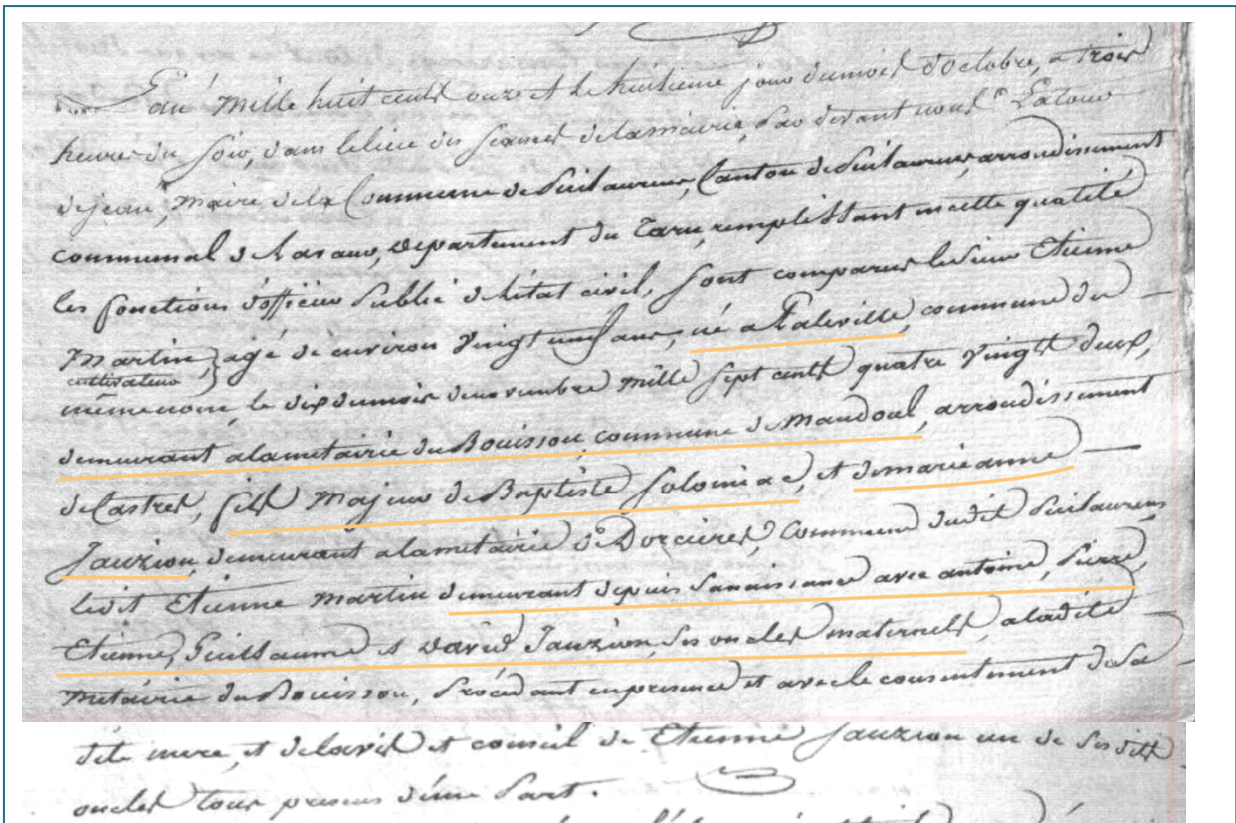 L'an mille huit cents onze et le huitieme jour du mois d'octobre, a trois
heures du soir, dans le lieu des seances de la mairie, par devant nous Latour
dejean, maire de la Commune de Puilaurens, Canton de Puilaurens, arrondissement
communal de Lavaur, departement du Tarn, remplissant en cette qualité
les fonctions d'officier Public de l'état civil, sont comparus le sieur Etienne
Martin, agé de environ vingt neuf ans, né a Paleville, commune du
cultivateur
même nom, le dix du mois de novembre mille sept cents quatre vingts deux,
demeurant a la metairie du Bouissou, commune de Maudoul, arrondissement
de Castres, fils majeur de Baptiste Soloniac, et de marie anne
Jauzion, demeurant a la metairie de Dorcieres, Commune du dit Puilaurens
ledit Etienne Martin demeurant depuis sa naissance avec antoine, Pierre,
Etienne, Guillaume et David Jauzion, ses oncles maternels, a la dite
metairie du Bouissou, Procédant en presence et avec le consentement de sa
dite mere, et de l'avis et conseil de Etienne Jauzion un de ses dits
oncles tous presens d'une Part.